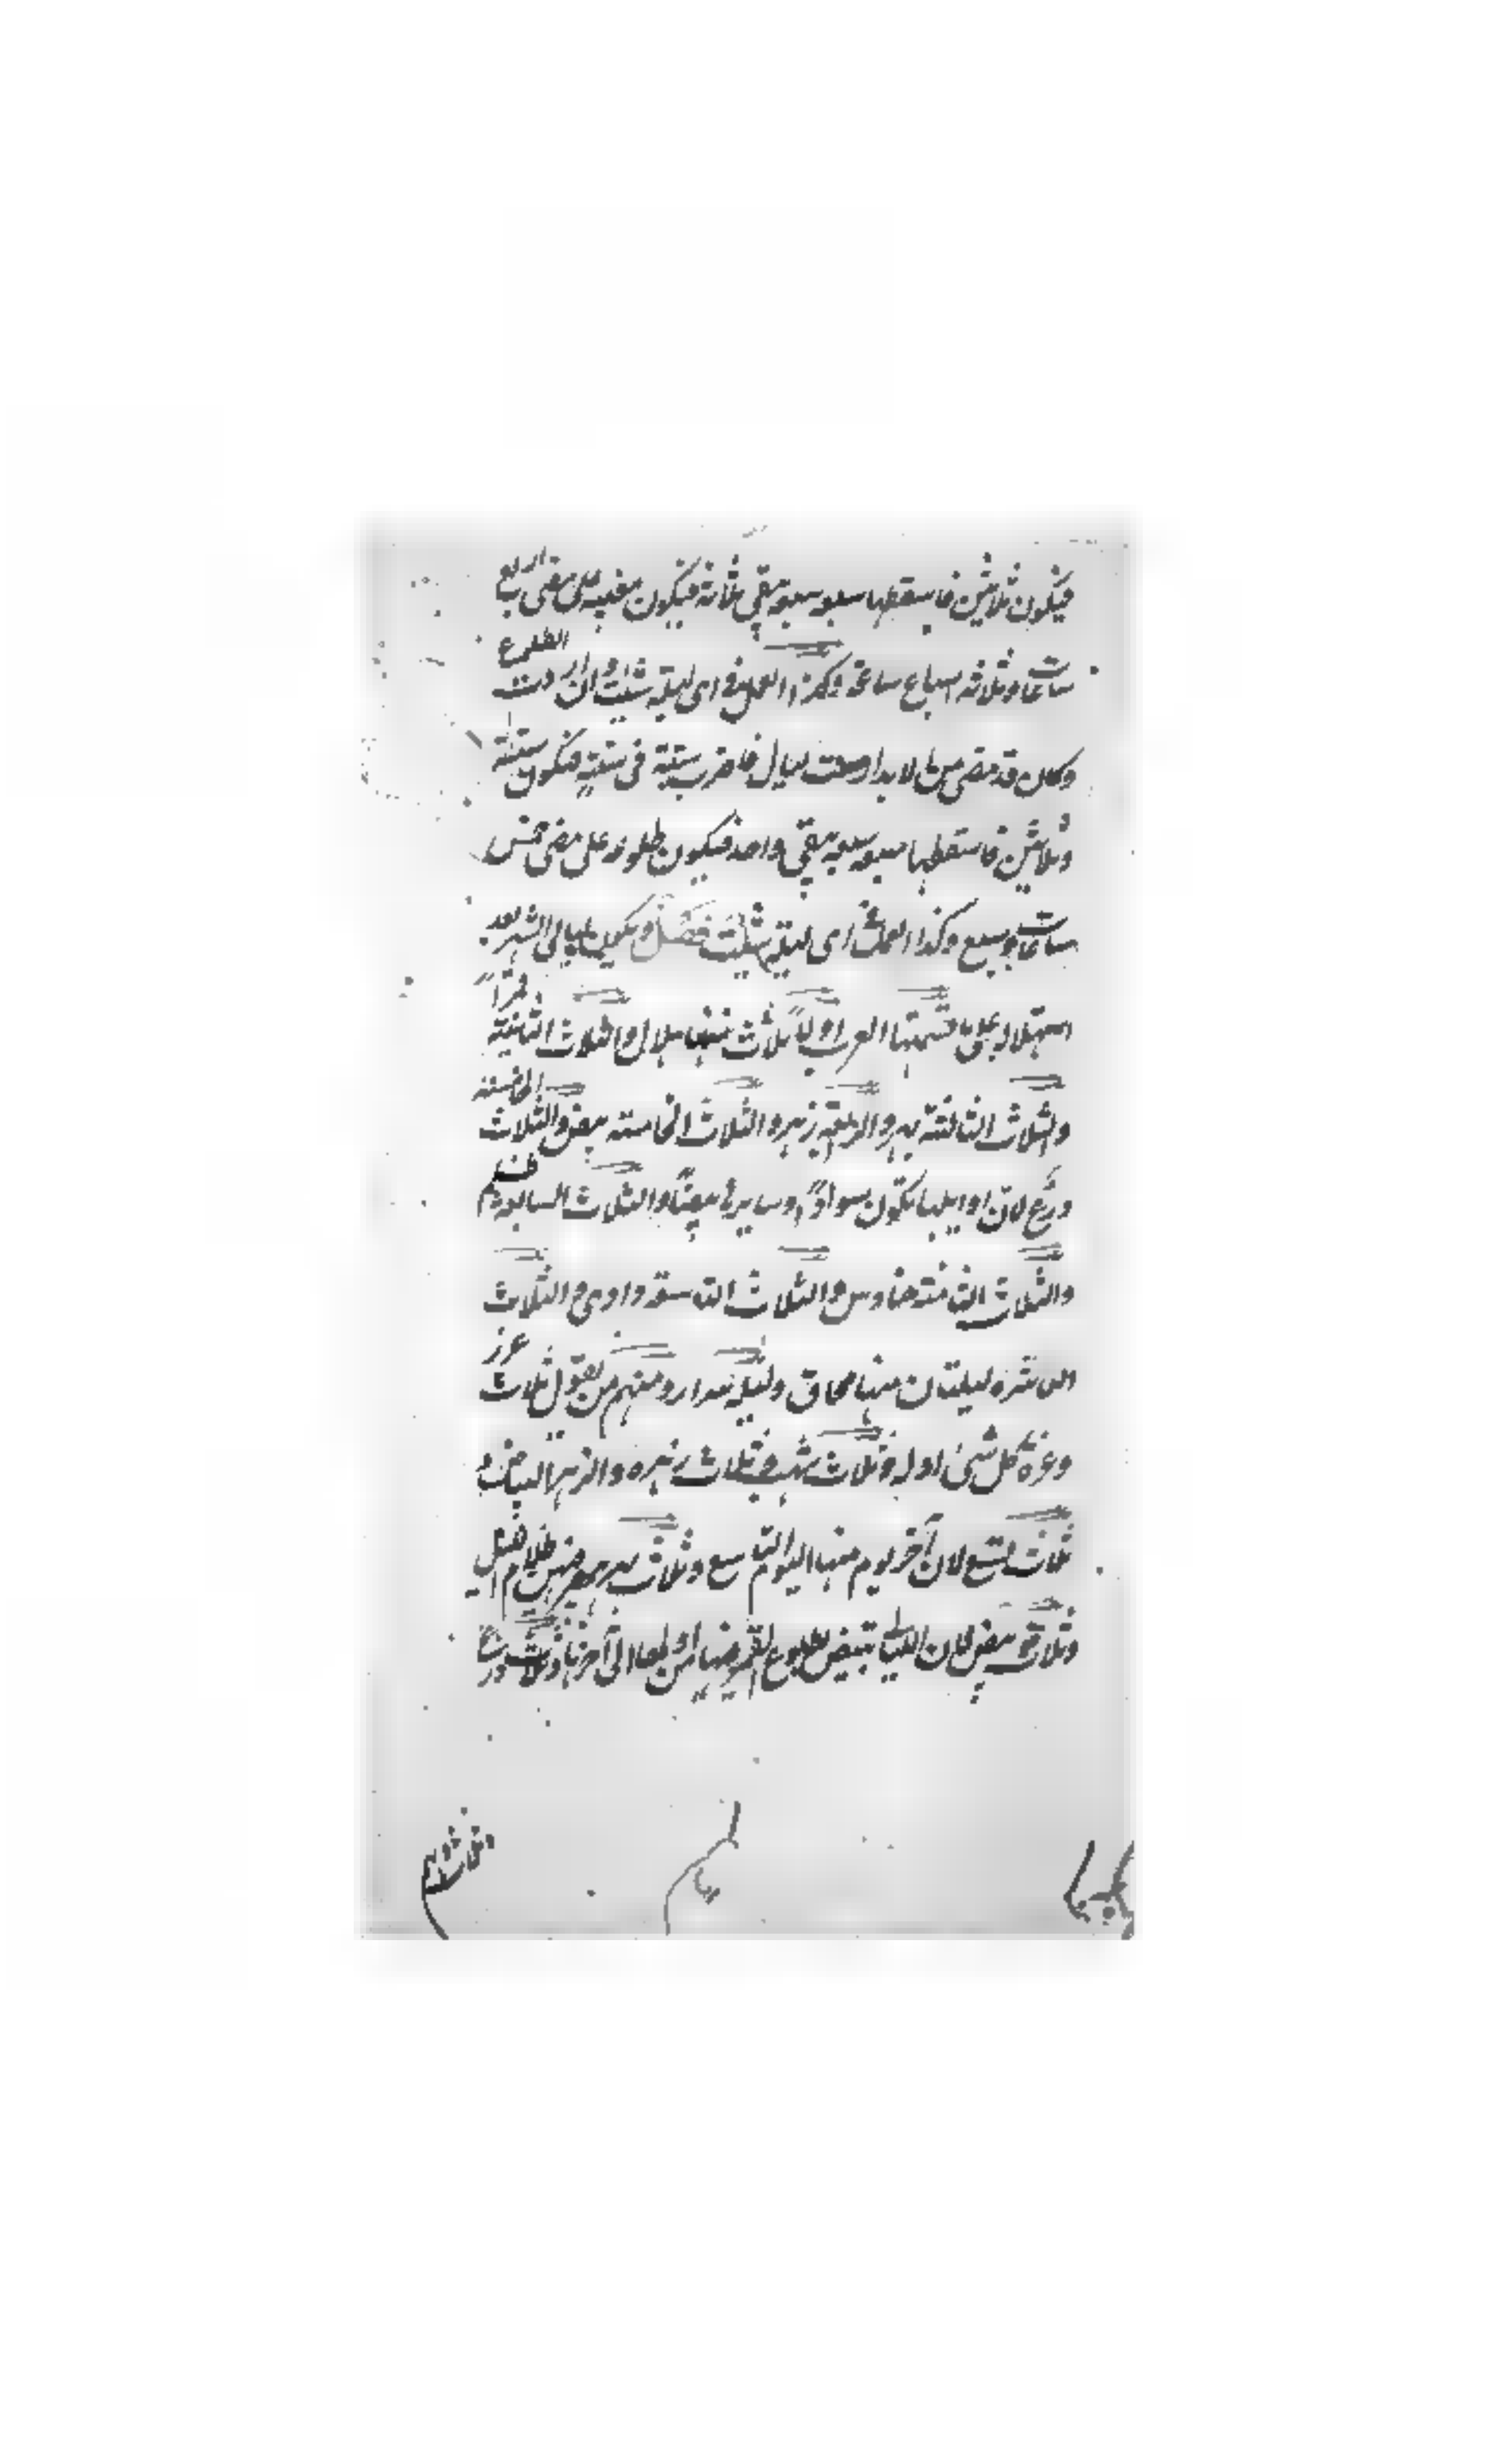 فيكون ثلاثين فاسقطها سبعه سبعه يبقى ثمانة فيكون مغيبه على مضى اربع
ساعات وثلاثه اسباع ساعة وكذا العمل فى اى ليلة شئت وان اردت الطلوع
وكان قد مضى من الابدار ست ليال فاضرب ستة فى ستة فيكون ستة
وثلاثين فاسقطها سبعه سبعه يبقى واحد فيكون طلوعه على مضى خمس
ساعات وسبع وكذا العمل فى اى ليلة شئت فصل ويكون ليالى الشهر بعد
استهلاله على ما قسمتها العرب اولا ثلاث منها هلال والثلاث الثانية قمرا
والثلاث الثالثة بهر والرابعة زهر والثلاث الخامسة بيض والثلاث
درع لان اوايلها تكون سوادا وسايرها بيضا والثلاث السابعه ظلم
والثلاث الثامنة حنادس والثلاث التاسعة دوادى والثلاث
العاشره ليلتان منها محاق وليلة سرار ومنهم من يقول ثلاث غرر
وغرة كل شئ اوله وثلاث شهب وثلاث زهر والزهر البياض و
ثلاث تسع لان آخر يوم منها اليوم التاسع وثلاث بهر بهر فيهن ظلام الليل
وثلاث بيض لان الليالى تبيض بطلوع القمر فيها من اولها الى آخرها وثلاث درع